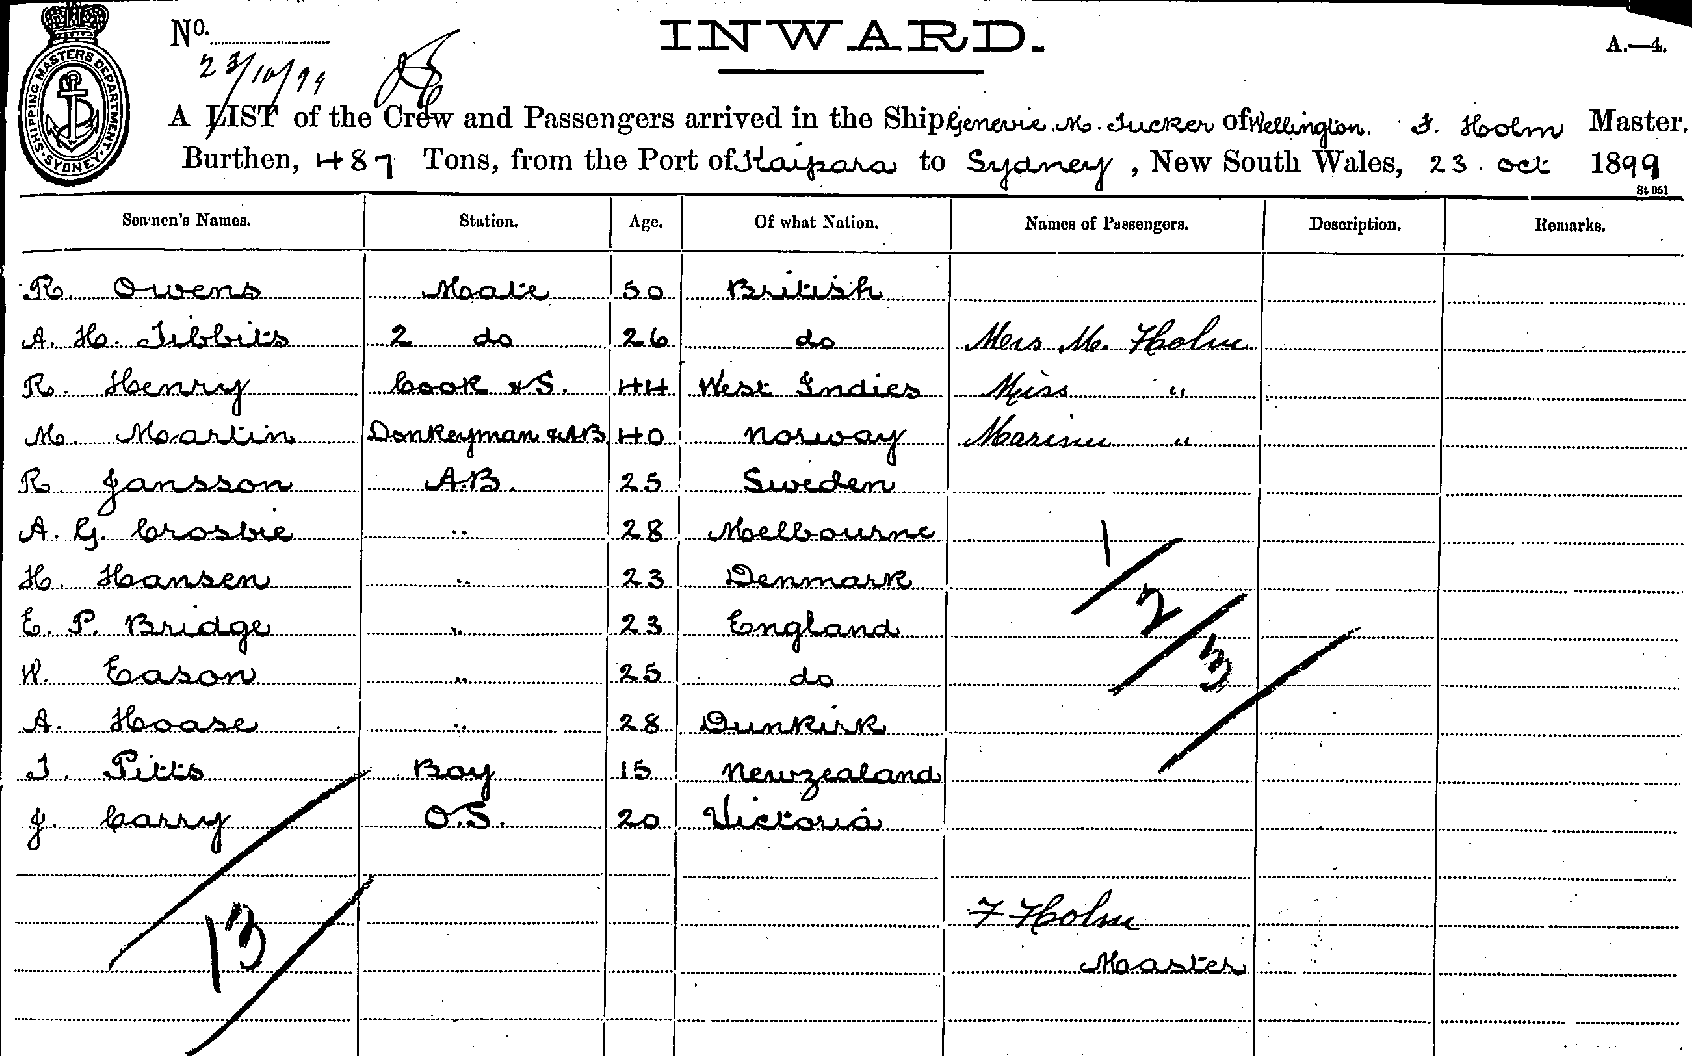 No.
INWARD.
A.—4.
23/10/99
SHIPPING MASTERS DEPARTMENT SYDNEY
A LIST of the Crew and Passengers arrived in the Ship Genevie. M. Tucker of Wellington. F. Holm Master,
Burthen, 487 Tons, from the Port of Kaipara to Sydney, New South Wales, 23. oct 1899
St 051
Seamen's Names. Station. Age. Of what Nation. Names of Passengers. Description. Remarks.
R. Owens Mate 50 British
A. H. Tibbits 2 do 26 do Mrs M. Holm
R. Henry Cook & S. 44 West Indies Miss "
M. Martin Donkeyman & AB 40 Norway "
R Jansson A.B. 25 Sweden
A. G. Crosbie " 28 Melbourne
H. Hansen " 23 Denmark
E. P. Bridge " 23 England
W. Eason " 25 do
A. Hoase " 28 Dunkirk
T. Pitts Boy 15 Newzealand
J. Carry O.S. 20 Victoria
1/2/3
13
F Holm
Master